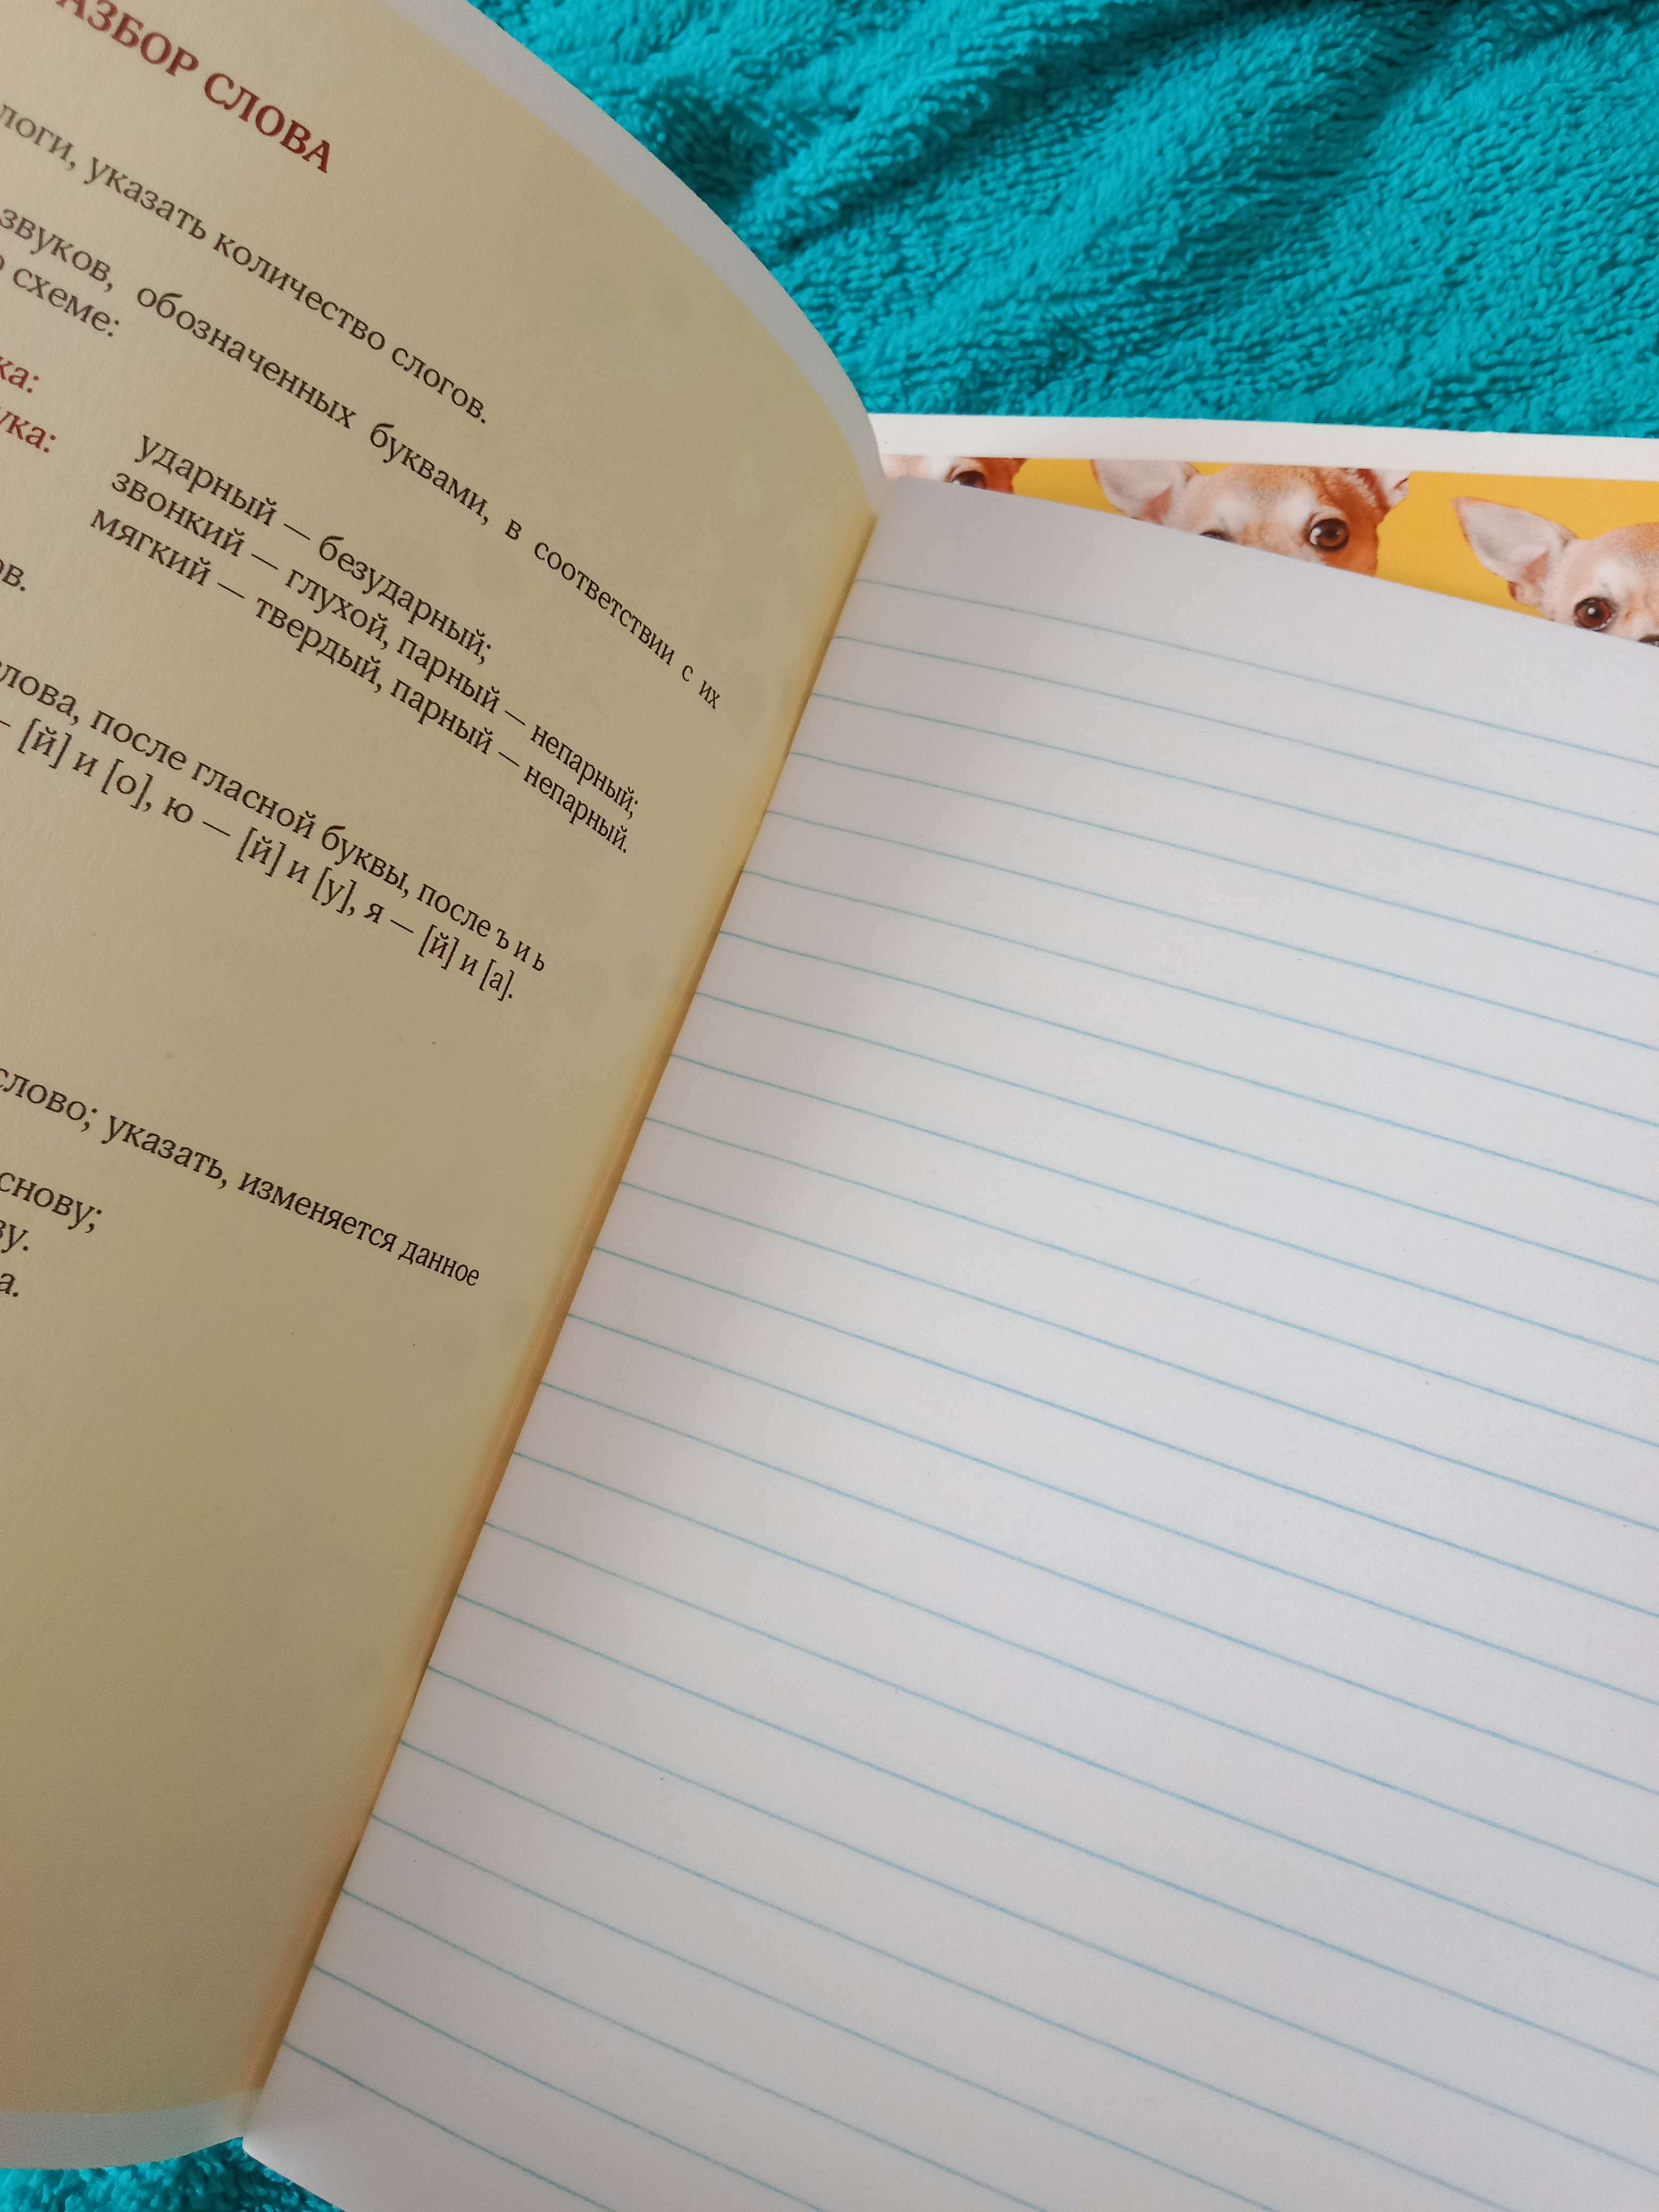 АЗБОР СЛОВА
логи, указать количество слогов.
звуков, обозначенных буквами, в соответствии с их
схеме:
ка:
ука: ударный — безударный;
звонкий — глухой, парный — непарный;
мягкий — твердый, парный — непарный.
ов.
лова, после гласной буквы, после ъ и ь
— [й] и [о], ю — [й] и [у], я — [й] и [а].
слово; указать, изменяется данное
снову;
ву.
а.